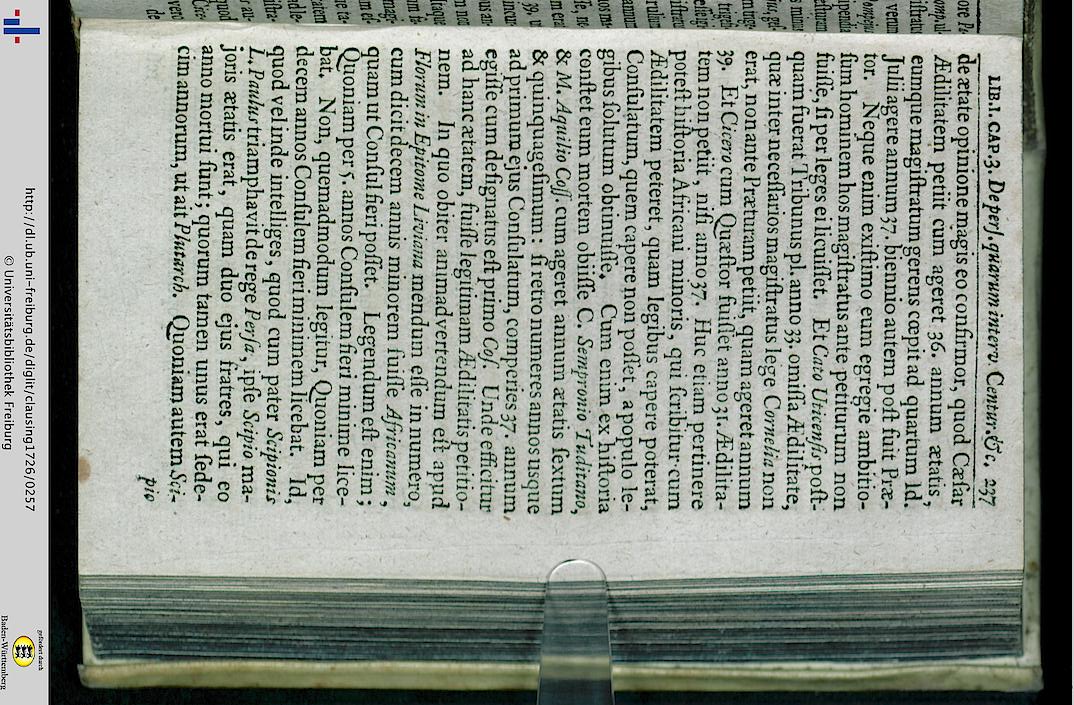 LIB. I. CAP. 3. De perſ. quarum interv. Centur. &c. 237
de ætate opinione magis eo confirmor, quod Cæſar
Ædilitatem petiit cum ageret 36. annum ætatis,
eumque magiſtratum gerens cœpit ad quartum Id.
Julii agere annum 37. biennio autem poſt fuit Præ-
tor. Neque enim exiſtimo eum egregie ambitio-
ſum hominem hos magiſtratus ante petiturum non
fuiſſe, ſi per leges ei licuiſſet. Et Cato Uticenſis poſt-
quam fuerat Tribunus pl. anno 33. omiſſa Ædilitate,
quæ inter neceſſarios magiſtratus lege Cornelia non
erat, non ante Præturam petiit, quam ageret annum
39. Et Cicero cum Quæſtor fuiſſet anno 31. Ædilita-
tem non petiit, niſi anno 37. Huc etiam pertinere
poteſt hiſtoria Africani minoris, qui ſcribitur cum
Ædilitatem peteret, quam legibus capere poterat,
Conſulatum, quem capere non poſſet, a populo le-
gibus ſolutum obtinuiſſe. Cum enim ex hiſtoria
conſtet eum mortem obiiſſe C. Sempronio Tuditano,
& M. Aquilio Coſſ. cum ageret annum ætatis ſextum
& quinquageſimum: ſi retro numeres annos usque
ad primum ejus Conſulatum, comperies 37. annum,
egiſſe cum deſignatus eſt primo Coſ. Unde efficitur
ad hanc ætatem, fuiſſe legitimam Ædilitatis petitio-
nem. In quo obiter animadvertendum eſt apud
Florum in Epitome Liviana mendum eſſe in numero,
cum dicit decem annis minorem fuiſſe Africanum,
quam ut Conſul fieri poſſet. Legendum eſt enim;
Quoniam per 5. annos Conſulem fieri minime lice-
bat. Non, quemadmodum legitur, Quoniam per
decem annos Conſulem fieri minimem licebat. Id,
quod vel inde intelliges, quod cum pater Scipionis
L. Paulus triumphavit de rege Perſa, ipſe Scipio ma-
joris ætatis erat, quam duo ejus fratres, qui eo
anno mortui ſunt; quorum tamen unus erat ſede-
cim annorum, ut ait Plutarch. Quoniam autem Sci-
pio
http://dl.ub.uni-freiburg.de/diglit/clausing1726/0257
© Universitätsbibliothek Freiburg
gefördert durch
Baden-Württemberg